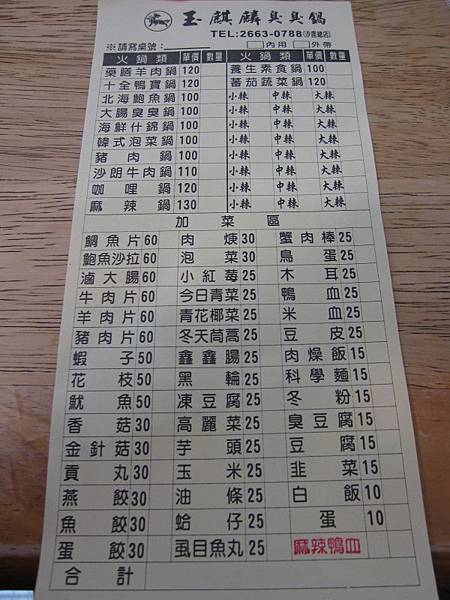 玉麒麟臭臭鍋
TEL:2663-0788(沙鹿總店)
※請寫桌號: □內用 □外帶
火鍋類 單價 數量 火鍋類 單價 數量
藥膳羊肉鍋 120 養生素食鍋 100
十全鴨寶鍋 120 番茄蔬菜鍋 100
北海鮑魚鍋 100 小辣 中辣 大辣
大腸臭臭鍋 100 小辣 中辣 大辣
海鮮什錦鍋 100 小辣 中辣 大辣
韓式泡菜鍋 100 小辣 中辣 大辣
豬肉鍋 100 小辣 中辣 大辣
沙朗牛肉鍋 110 小辣 中辣 大辣
咖哩鍋 120 小辣 中辣 大辣
麻辣鍋 130 小辣 中辣 大辣
加菜區
鯛魚片 60 肉焿 30 蟹肉棒 25
鮑魚沙拉 60 泡菜 30 鳥蛋 25
滷大腸 60 小紅莓 25 木耳 25
牛肉片 60 今日青菜 25 鴨血 25
羊肉片 60 青花椰菜 25 米血 25
豬肉片 60 冬天茼蒿 25 豆皮 25
蝦子 50 鑫鑫腸 25 肉燥飯 15
花枝 50 黑輪 25 科學麵 15
魷魚 50 凍豆腐 25 冬粉 15
香菇 30 高麗菜 25 臭豆腐 15
金針菇 30 芋頭 25 豆腐 15
貢丸 30 玉米 25 韭菜 15
燕餃 30 油條 25 白飯 10
魚餃 30 蛤仔 25 蛋 10
蛋餃 30 虱目魚丸 25 麻辣鴨血
合計